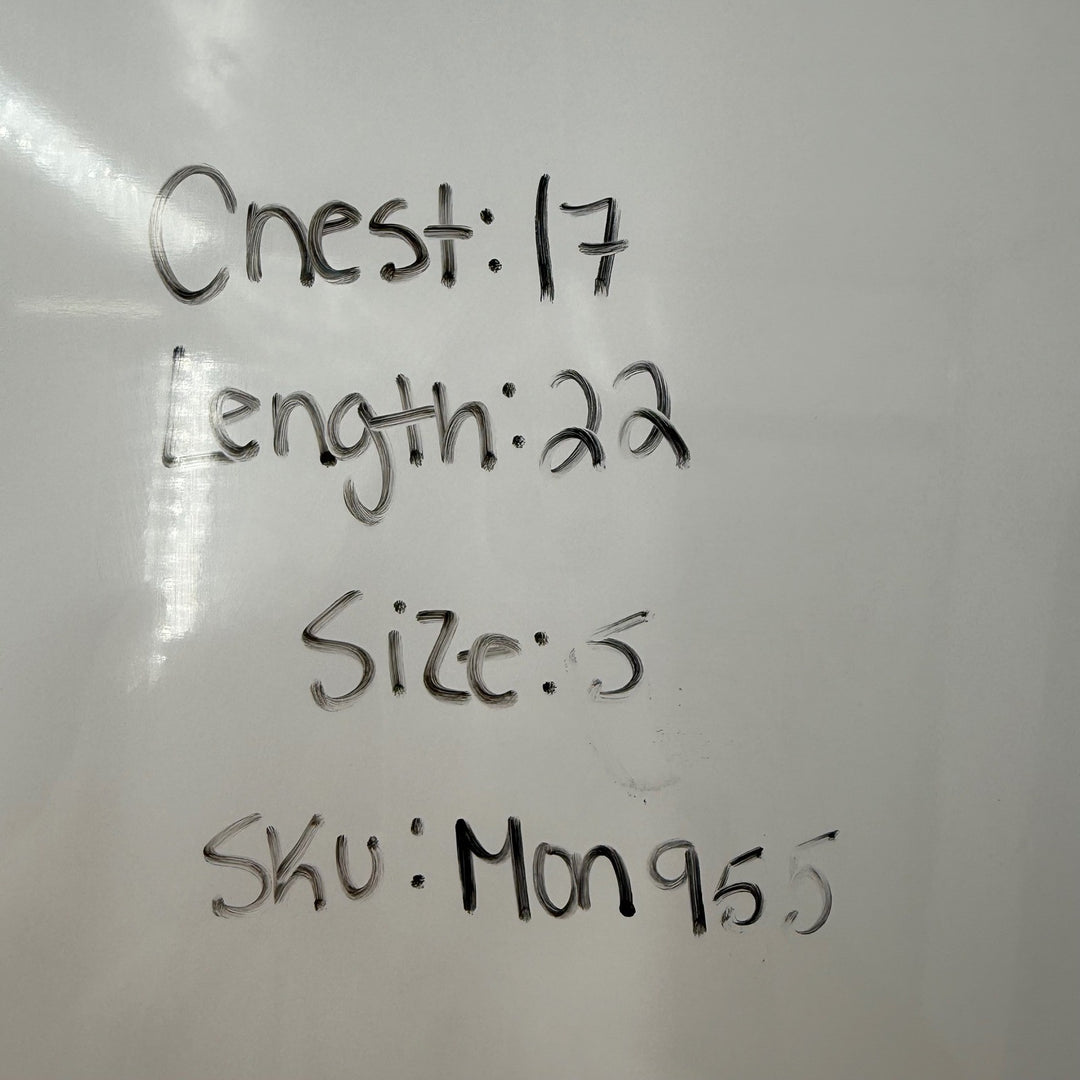 Cnest: 17
Length: 22
Size: 5
SKU: Mon955